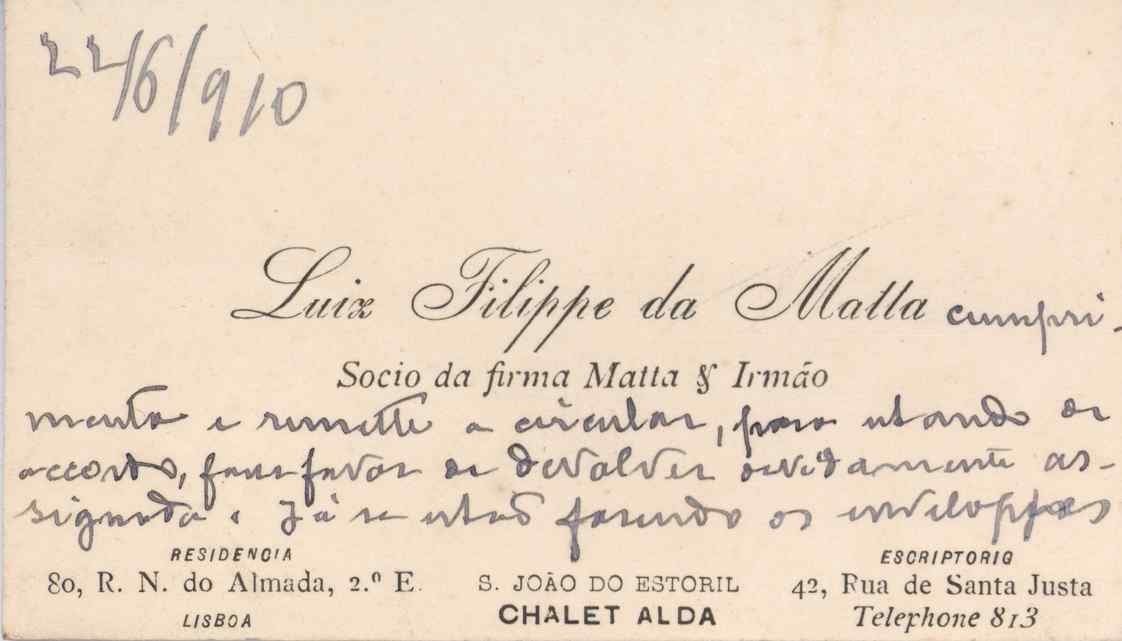 22/6/910
Luiz Filippe da Matta cumpri-
Socio da firma Matta & Irmão
menta e remette a circular, para estando de
accordo, fazer favor de devolver devidamente as-
signada. Já se estão fazendo os enveloppes
RESIDENCIA
80, R. N. do Almada, 2.º E.
LISBOA
S. JOÃO DO ESTORIL
CHALET ALDA
ESCRIPTORIO
42, Rua de Santa Justa
Telephone 813